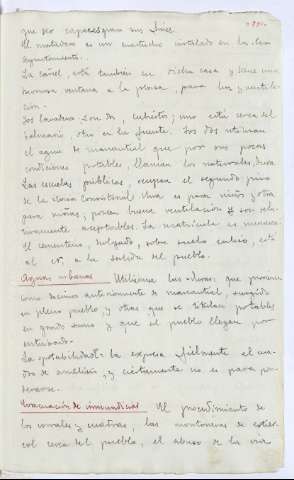 que sea capaces para sus fines.
El matadero es un cuartucho instalado en la casa
Ayuntamiento.
La cárcel, está también en dicha casa y tiene una
hermosa ventana a la plaza, para luz y ventila-
ción.
Los lavaderos son dos, cubiertos; uno está cerca del
balneario, otro en la fuente. Los dos utilizan
el agua de manantial que por sus pocas
condiciones potables, llaman los naturales, dura.
Las escuelas públicas, ocupan el segundo piso
de la Casa Consistorial. Una es para niños y otra
para niñas, poseen buena ventilación y son rela-
tivamente aceptables. La matrícula es numerosa.
El cementerio, holgado, sobre suelo calizo, está
al N, a la salida del pueblo.
Aguas urbanas Utilízanse las duras: que provienen
como decimos anteriormente de manantial, surgido
en pleno pueblo y otras que se titulan potables
en grado sumo y que al pueblo llegan por
entubado.
La potabilidad la expresa fielmente el cua-
dro de análisis, y ciertamente no es para pon-
derarse.
Evacuación de inmundicias. El procedimiento de
los corrales y cuadras, los montones de estiér-
col cerca del pueblo, el abuso de la vía